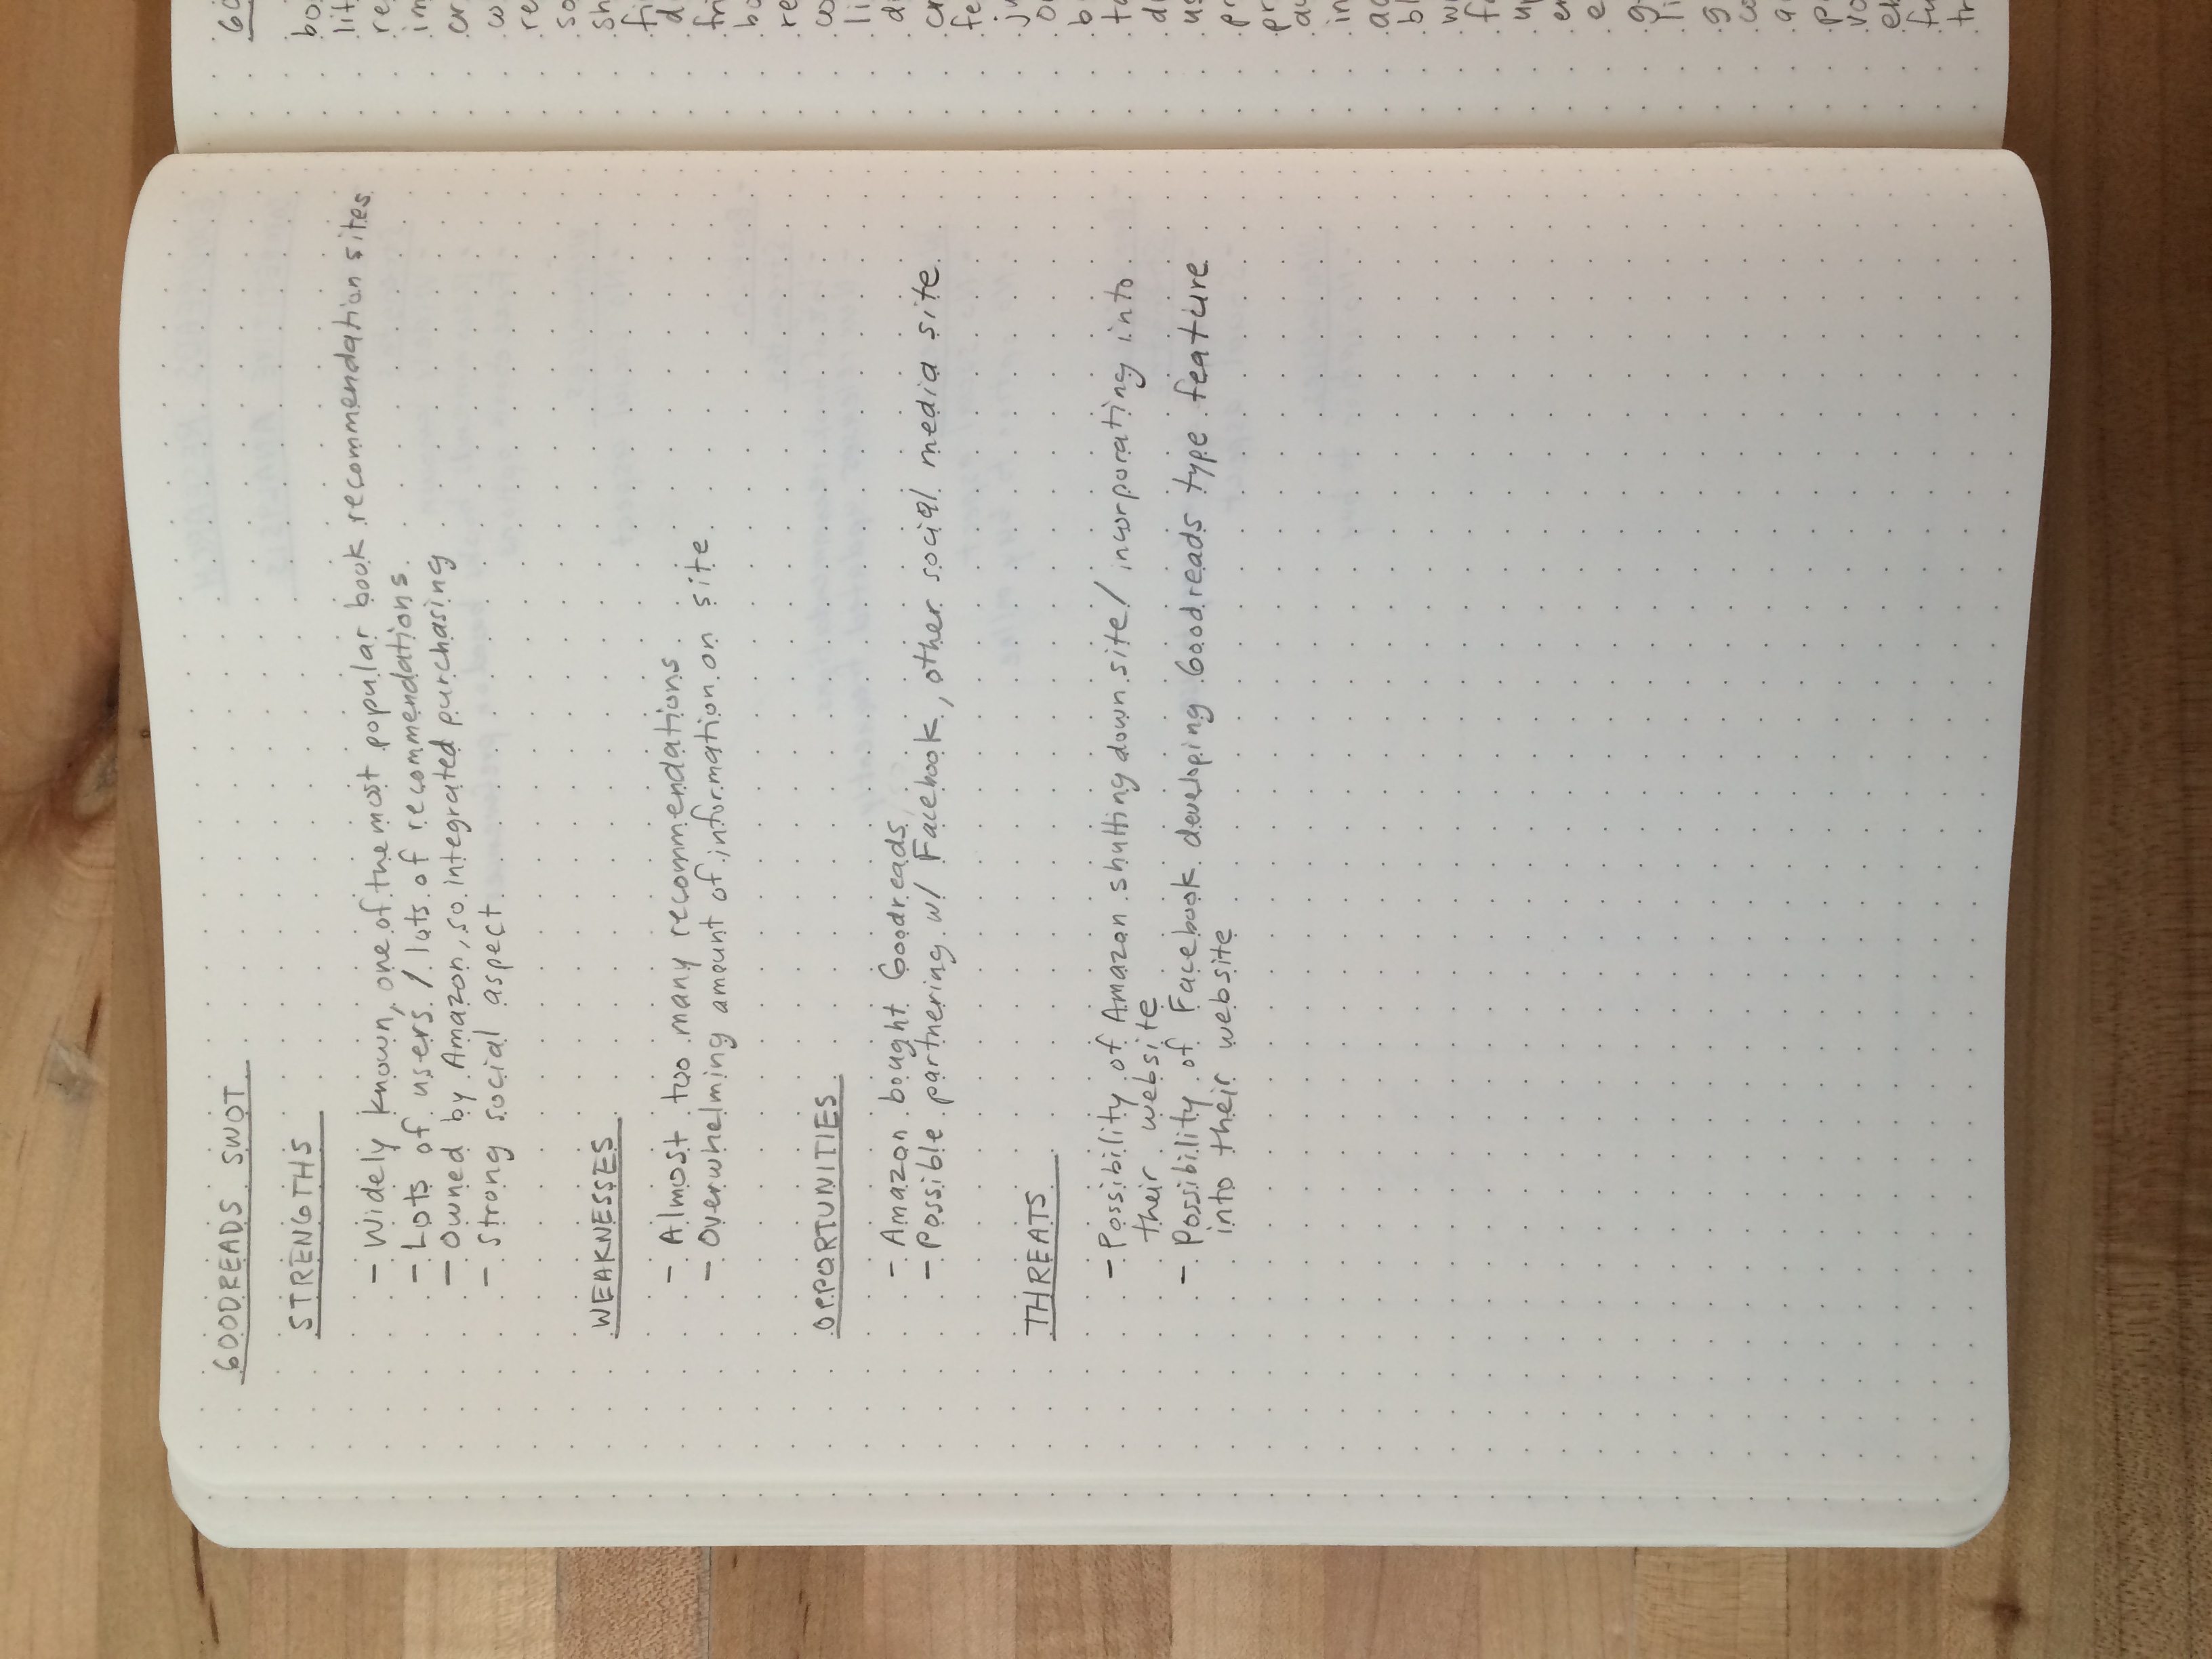 GOODREADS SWOT
STRENGTHS
- Widely known, one of the most popular book recommendation sites
- Lots of users / lots of recommendations
- Owned by Amazon, so integrated purchasing
- Strong social aspect
WEAKNESSES
- Almost too many recommendations
- Overwhelming amount of information on site
OPPORTUNITIES
- Amazon bought Goodreads
- Possible partnering w/ Facebook, other social media site
THREATS
- Possibility of Amazon shutting down site / incorporating into
their website
- Possibility of Facebook developing Goodreads type feature
into their website